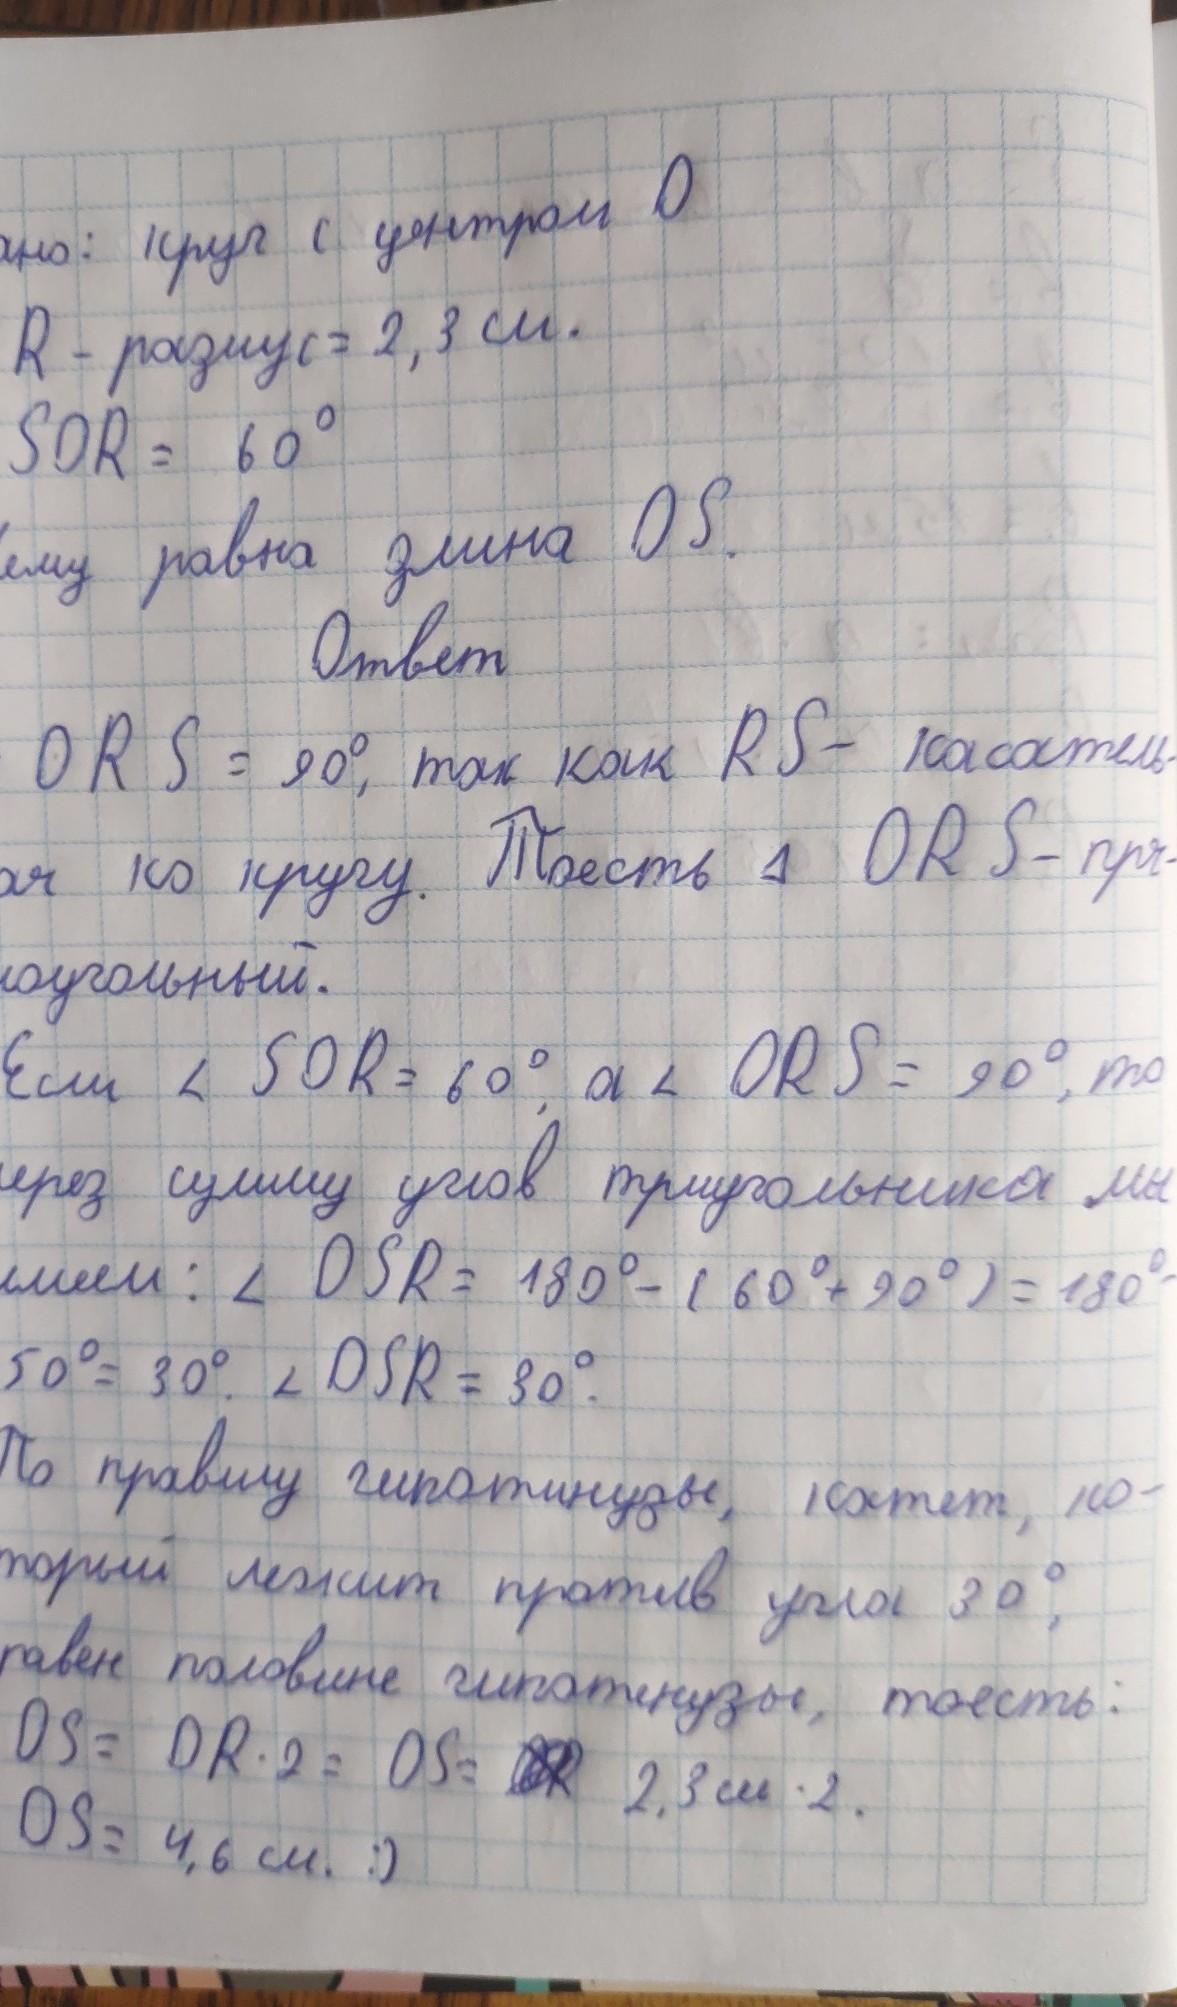 ано: круг с центром O
R - радиус = 2,3 см.
SOR = 60°
ему равна длина OS.
Ответ
ORS = 90°, так как RS - касатель-
ая ко кругу. Тоесть Δ ORS - пря-
моугольный.
Если ∠ SOR = 60°, а ∠ ORS = 90°, то
через сумму углов триугольника мы
имеем: ∠ OSR = 180° - (60° + 90°) = 180° -
50° = 30°. ∠ OSR = 30°.
По правилу гипотинузы, катет, ко-
торый лежит против угла 30°,
равен половине гипотенузы, тоесть:
OS = OR · 2 = OS = 2,3 см · 2.
OS = 4,6 см. :)